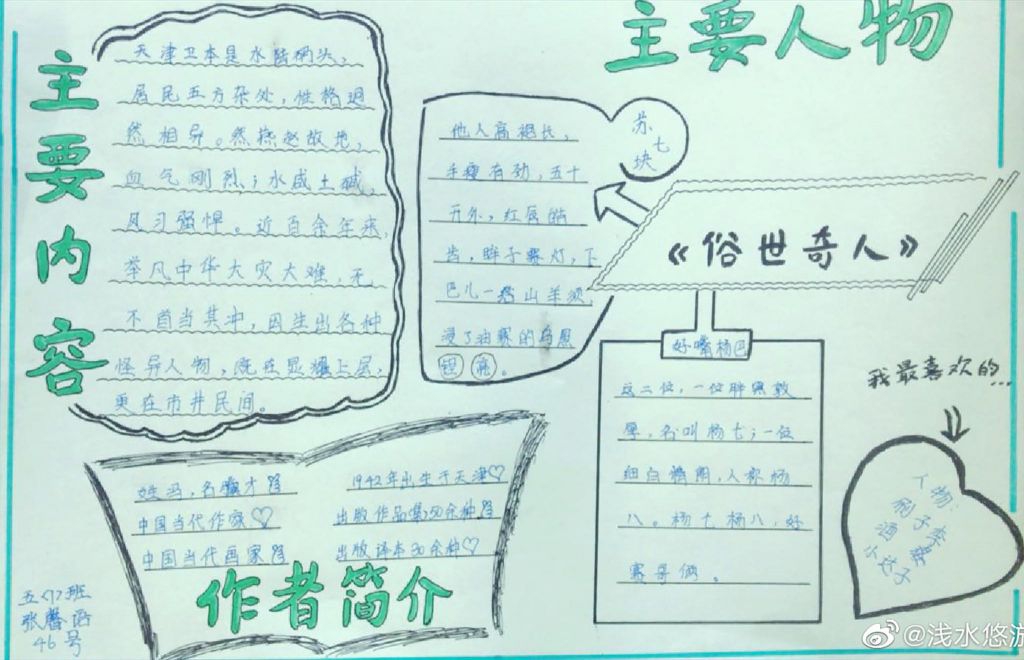 主要内容
天津卫本是水陆码头，
居民五方杂处，性格迥
然相异。然燕赵故地，
血气刚烈；水咸土碱，
风习强悍。近百余年来，
举凡中华大灾大难，无
不首当其冲，因生出各种
怪异人物，既在显耀上层，
更在市井民间。
主要人物
苏七块
他人高袍长，
手瘦有劲，五十
开外，红唇皓
齿，眸子赛灯，下
巴儿一绺山羊须，
浸了油赛的乌黑
锃亮。
《俗世奇人》
好嘴杨巴
这二位，一位胖黑敦
厚，名叫杨七；一位
细白精朗，人称杨
八。杨七杨八，好
赛哥俩。
我最喜欢的...
人物：
刷子李
酒婆
小达子
姓冯，名骥才
中国当代作家
中国当代画家
1942年出生于天津
出版作品集50余种
出版译本30余种
作者简介
五〈7〉班
张馨
46号
@浅水悠游